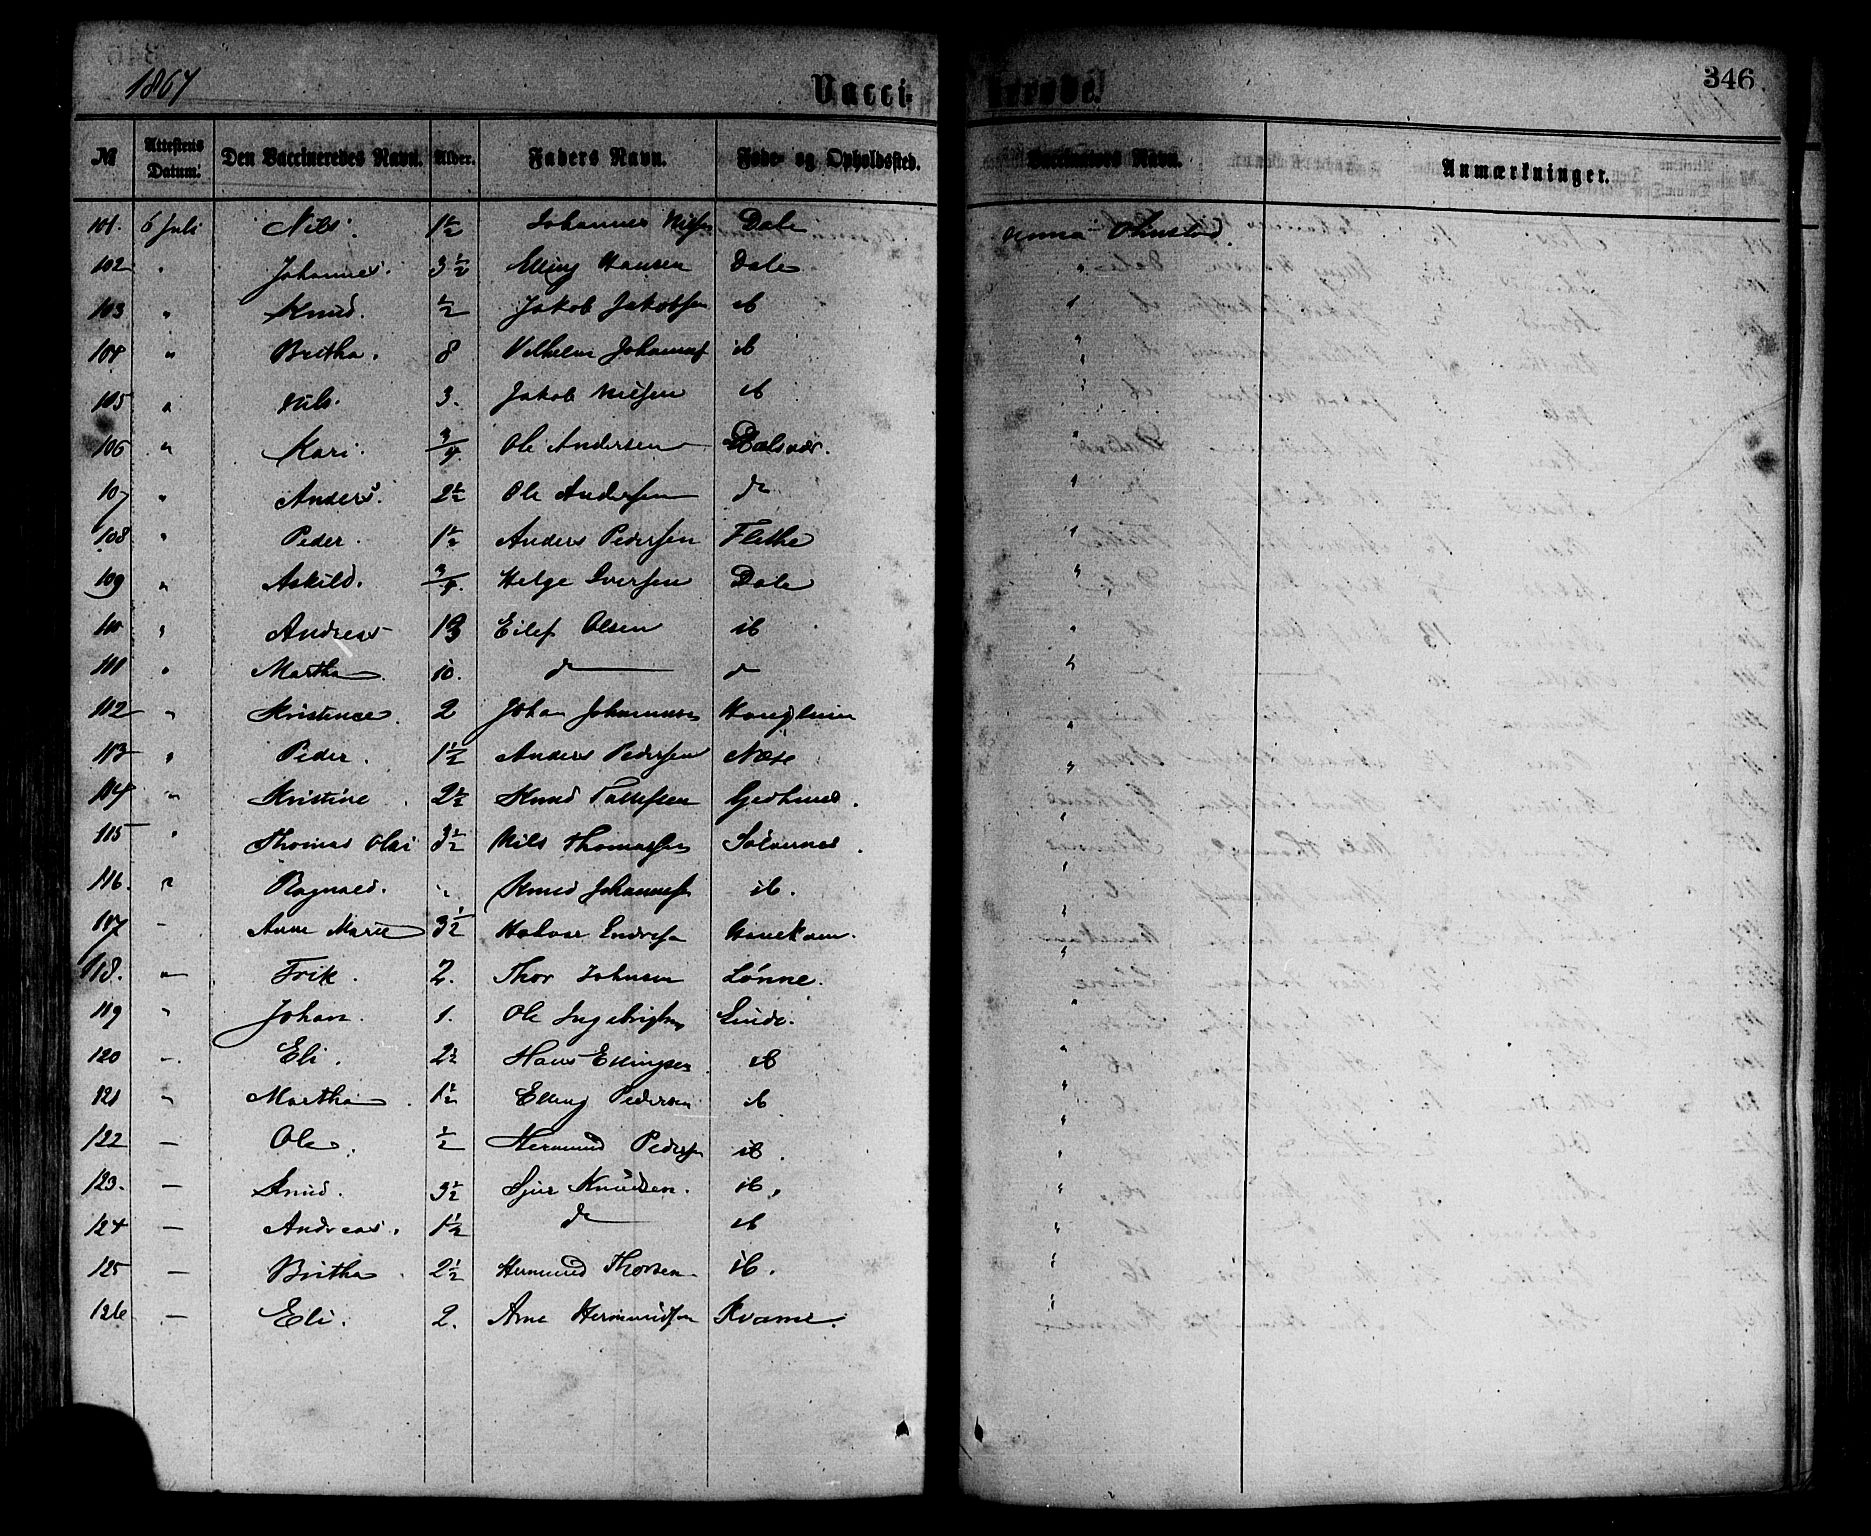 346
1867
Vacci- nerede.
№ Attestens Datum. Den Vaccineredes Navn. Alder. Faders Navn. Føde- og Opholdssted. Vaccinators Navn. Anmærkninger.
101. 6 Juli Nils. 1½ Johannes Nilsen Dale Anna Ølmstad.
102 " Johannes. 3½ Elling Hansen Dale "
103 " Knud. ½ Jakob Jakobsen ib "
104 " Britha. 8 Vilhelm Johannes ib "
105 " Nils. 3. Jakob Nilsen ib "
106 " Kari. 3/4 Ole Andersen Dalsvær. "
107 " Anders. 2½ Ole Andersen do "
108 " Peder. 1½ Anders Pedersen Flethe "
109 " Askild. 3/4. Helge Iversen Dale "
110 " Andreas 13 Eilef Olsen ib "
111 " Martha 10. do do "
112 " 2 Johan Johannesen "
113 " Peder. 1½ Anders Pedersen Næse "
114 " Kristine 2½ Knud Tollefsen "
115 " Thomas Olai 3½ Nils Thomassen Solvernes. "
116. " Ragnald. " Knud Johannes ib. "
117 - Anne Marie 3½ Halvor Endres "
118. - Frik. 2. Thor Johnsen Lønne. "
119 " Johan. 1. Ole Ingebrigtsen Linde. "
120 - Eli. 2½ Hans Ellingsen ib "
121 " Martha. 1½ Elling Pedersen ib "
122 - Ole. ½ Hermund Pedersen ib. "
123. - Knud. 3½ Sjur Knudsen. ib. "
124 - Andreas. 1½ do ib "
125 - Britha. 2½ Hermund Thorsen. ib. "
126 - Eli. 2. Arne Hermundsen Kvame. "